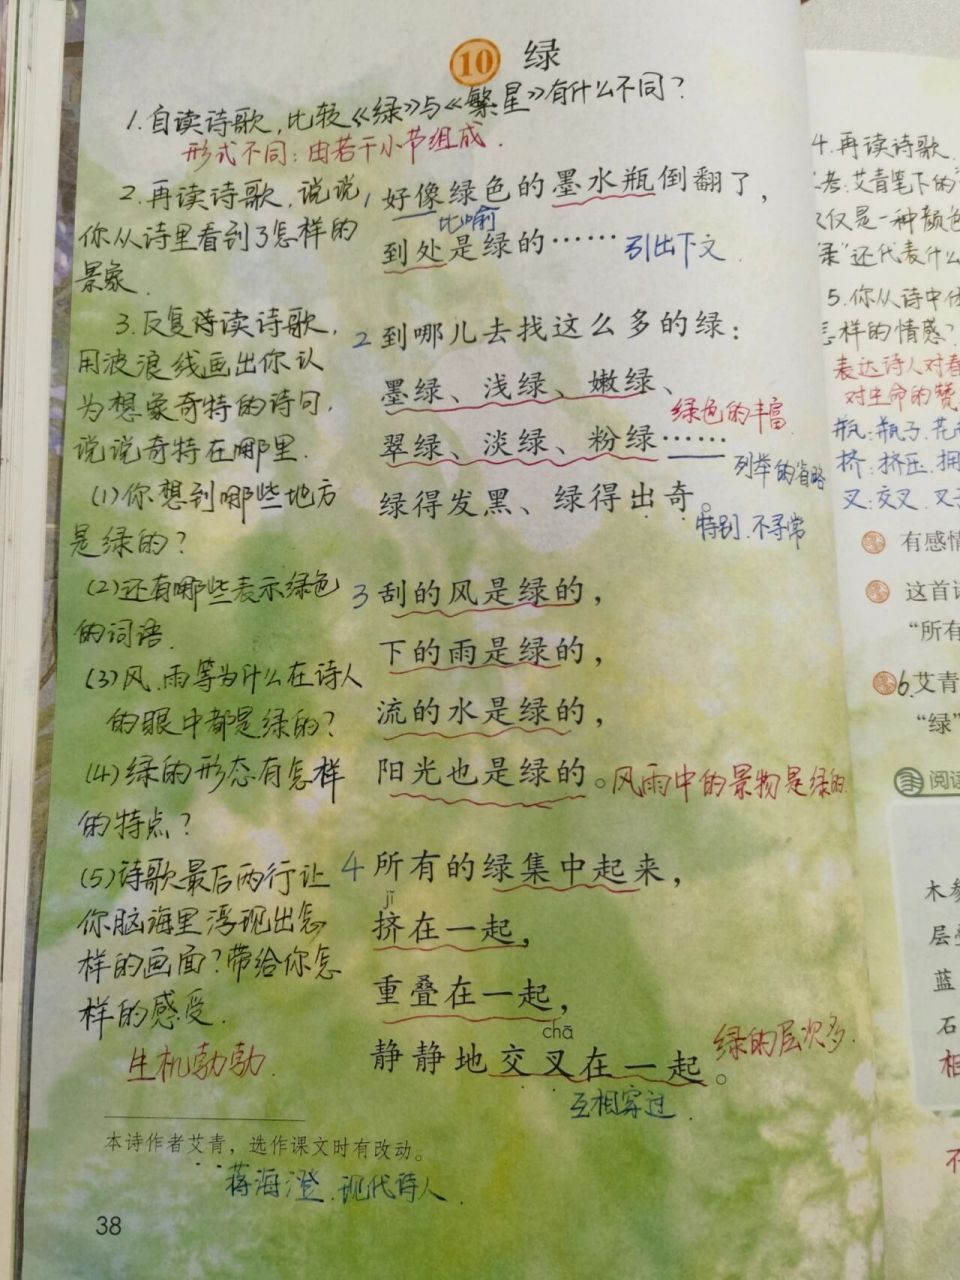 10 绿
1.自读诗歌,比较《绿》与《繁星》有什么不同?
形式不同:由若干小节组成.
2.再读诗歌,说说
你从诗里看到了怎样的
景象.
3.反复诵读诗歌,
用波浪线画出你认
为想象奇特的诗句,
说说奇特在哪里.
(1)你想到哪些地方
是绿的?
(2)还有哪些表示绿色
的词语.
(3)风、雨等为什么在诗人
的眼中都是绿的?
(4)绿的形态有怎样
的特点?
(5)诗歌最后两行让
你脑海里浮现出怎
样的画面?带给你怎
样的感受.
生机勃勃.
1 好像绿色的墨水瓶倒翻了,
比喻
到处是绿的…… 引出下文.
2 到哪儿去找这么多的绿:
墨绿、浅绿、嫩绿、
绿色的丰富.
翠绿、淡绿、粉绿……
列举的省略
绿得发黑、绿得出奇。
特别.不寻常
3 刮的风是绿的,
下的雨是绿的,
流的水是绿的,
阳光也是绿的。 风雨中的景物是绿的
4 所有的绿集中起来,
jǐ
挤在一起,
重叠在一起,
chā
静静地交叉在一起。
绿的层次多.
互相穿过.
本诗作者艾青,选作课文时有改动。
蒋海澄.现代诗人.
38
4.再读诗歌.
考:艾青笔下的"
仅是一种颜色
还代表什么
5.你从诗中
怎样的情感?
表达诗人对春
对生命的赞
瓶:瓶子.花
挤:挤压.拥
叉:交叉.叉子
有感情
这首诗
“所有
6.艾青
“绿”
阅读
木
层
蓝
石